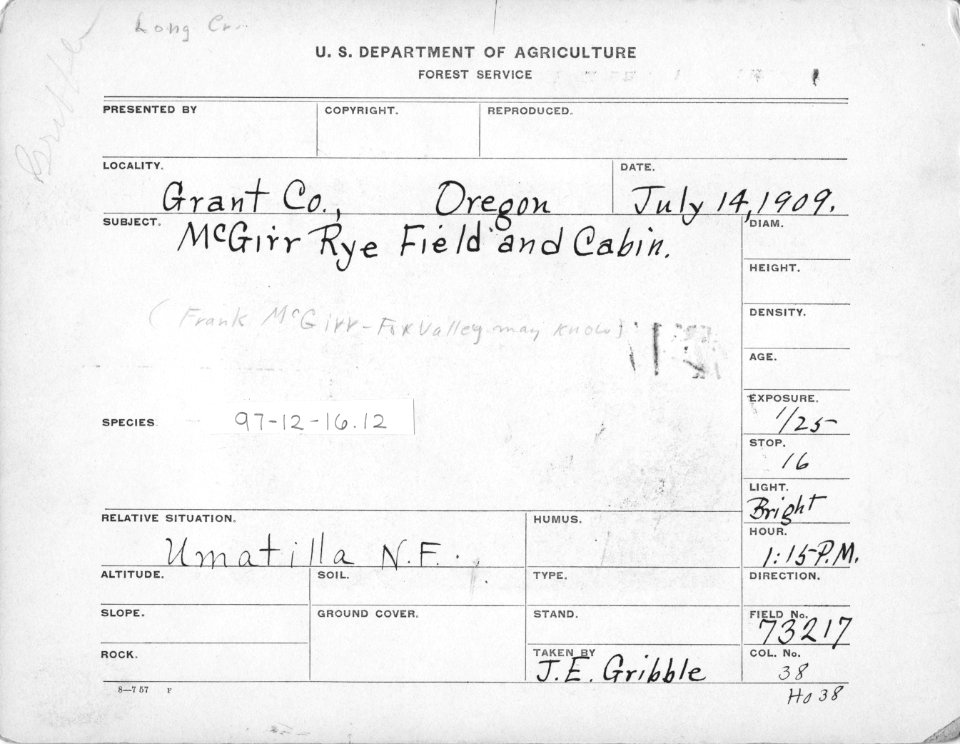 Long Cr.
U. S. DEPARTMENT OF AGRICULTURE
FOREST SERVICE
PRESENTED BY
COPYRIGHT.
REPRODUCED.
LOCALITY.
Grant Co., Oregon
DATE.
July 14, 1909.
SUBJECT.
McGirr Rye Field and Cabin.
(Frank McGirr - Fox Valley may know)
DIAM.
HEIGHT.
DENSITY.
AGE.
SPECIES.
97-12-16.12
EXPOSURE.
1/25
STOP.
16
LIGHT.
Bright
HOUR.
1:15 P.M.
RELATIVE SITUATION.
Umatilla N.F.
HUMUS.
ALTITUDE.
SOIL.
TYPE.
DIRECTION.
SLOPE.
GROUND COVER.
STAND.
FIELD No.
73217
ROCK.
TAKEN BY
J.E. Gribble
COL. No.
38
8—757 F
Ho 38